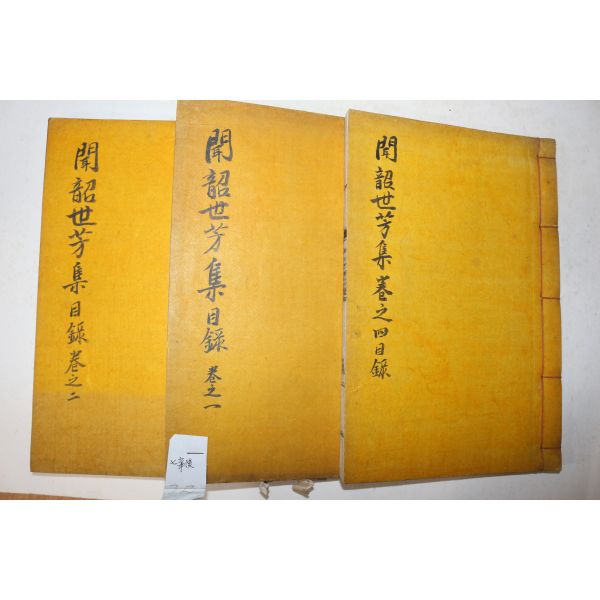 聞韶世芳集卷之四目錄
聞韶世芳集目錄 卷之一
聞韶世芳集目錄 卷之二